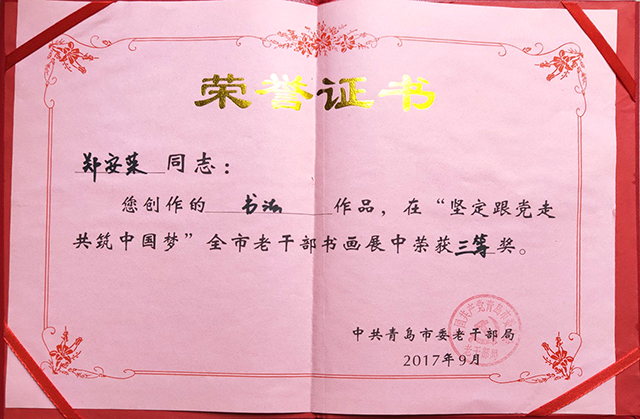 荣誉证书
郑安莱 同志：
您创作的 书法 作品，在“坚定跟党走
共筑中国梦”全市老干部书画展中荣获三等奖。
中共青岛市委老干部局
2017年9月